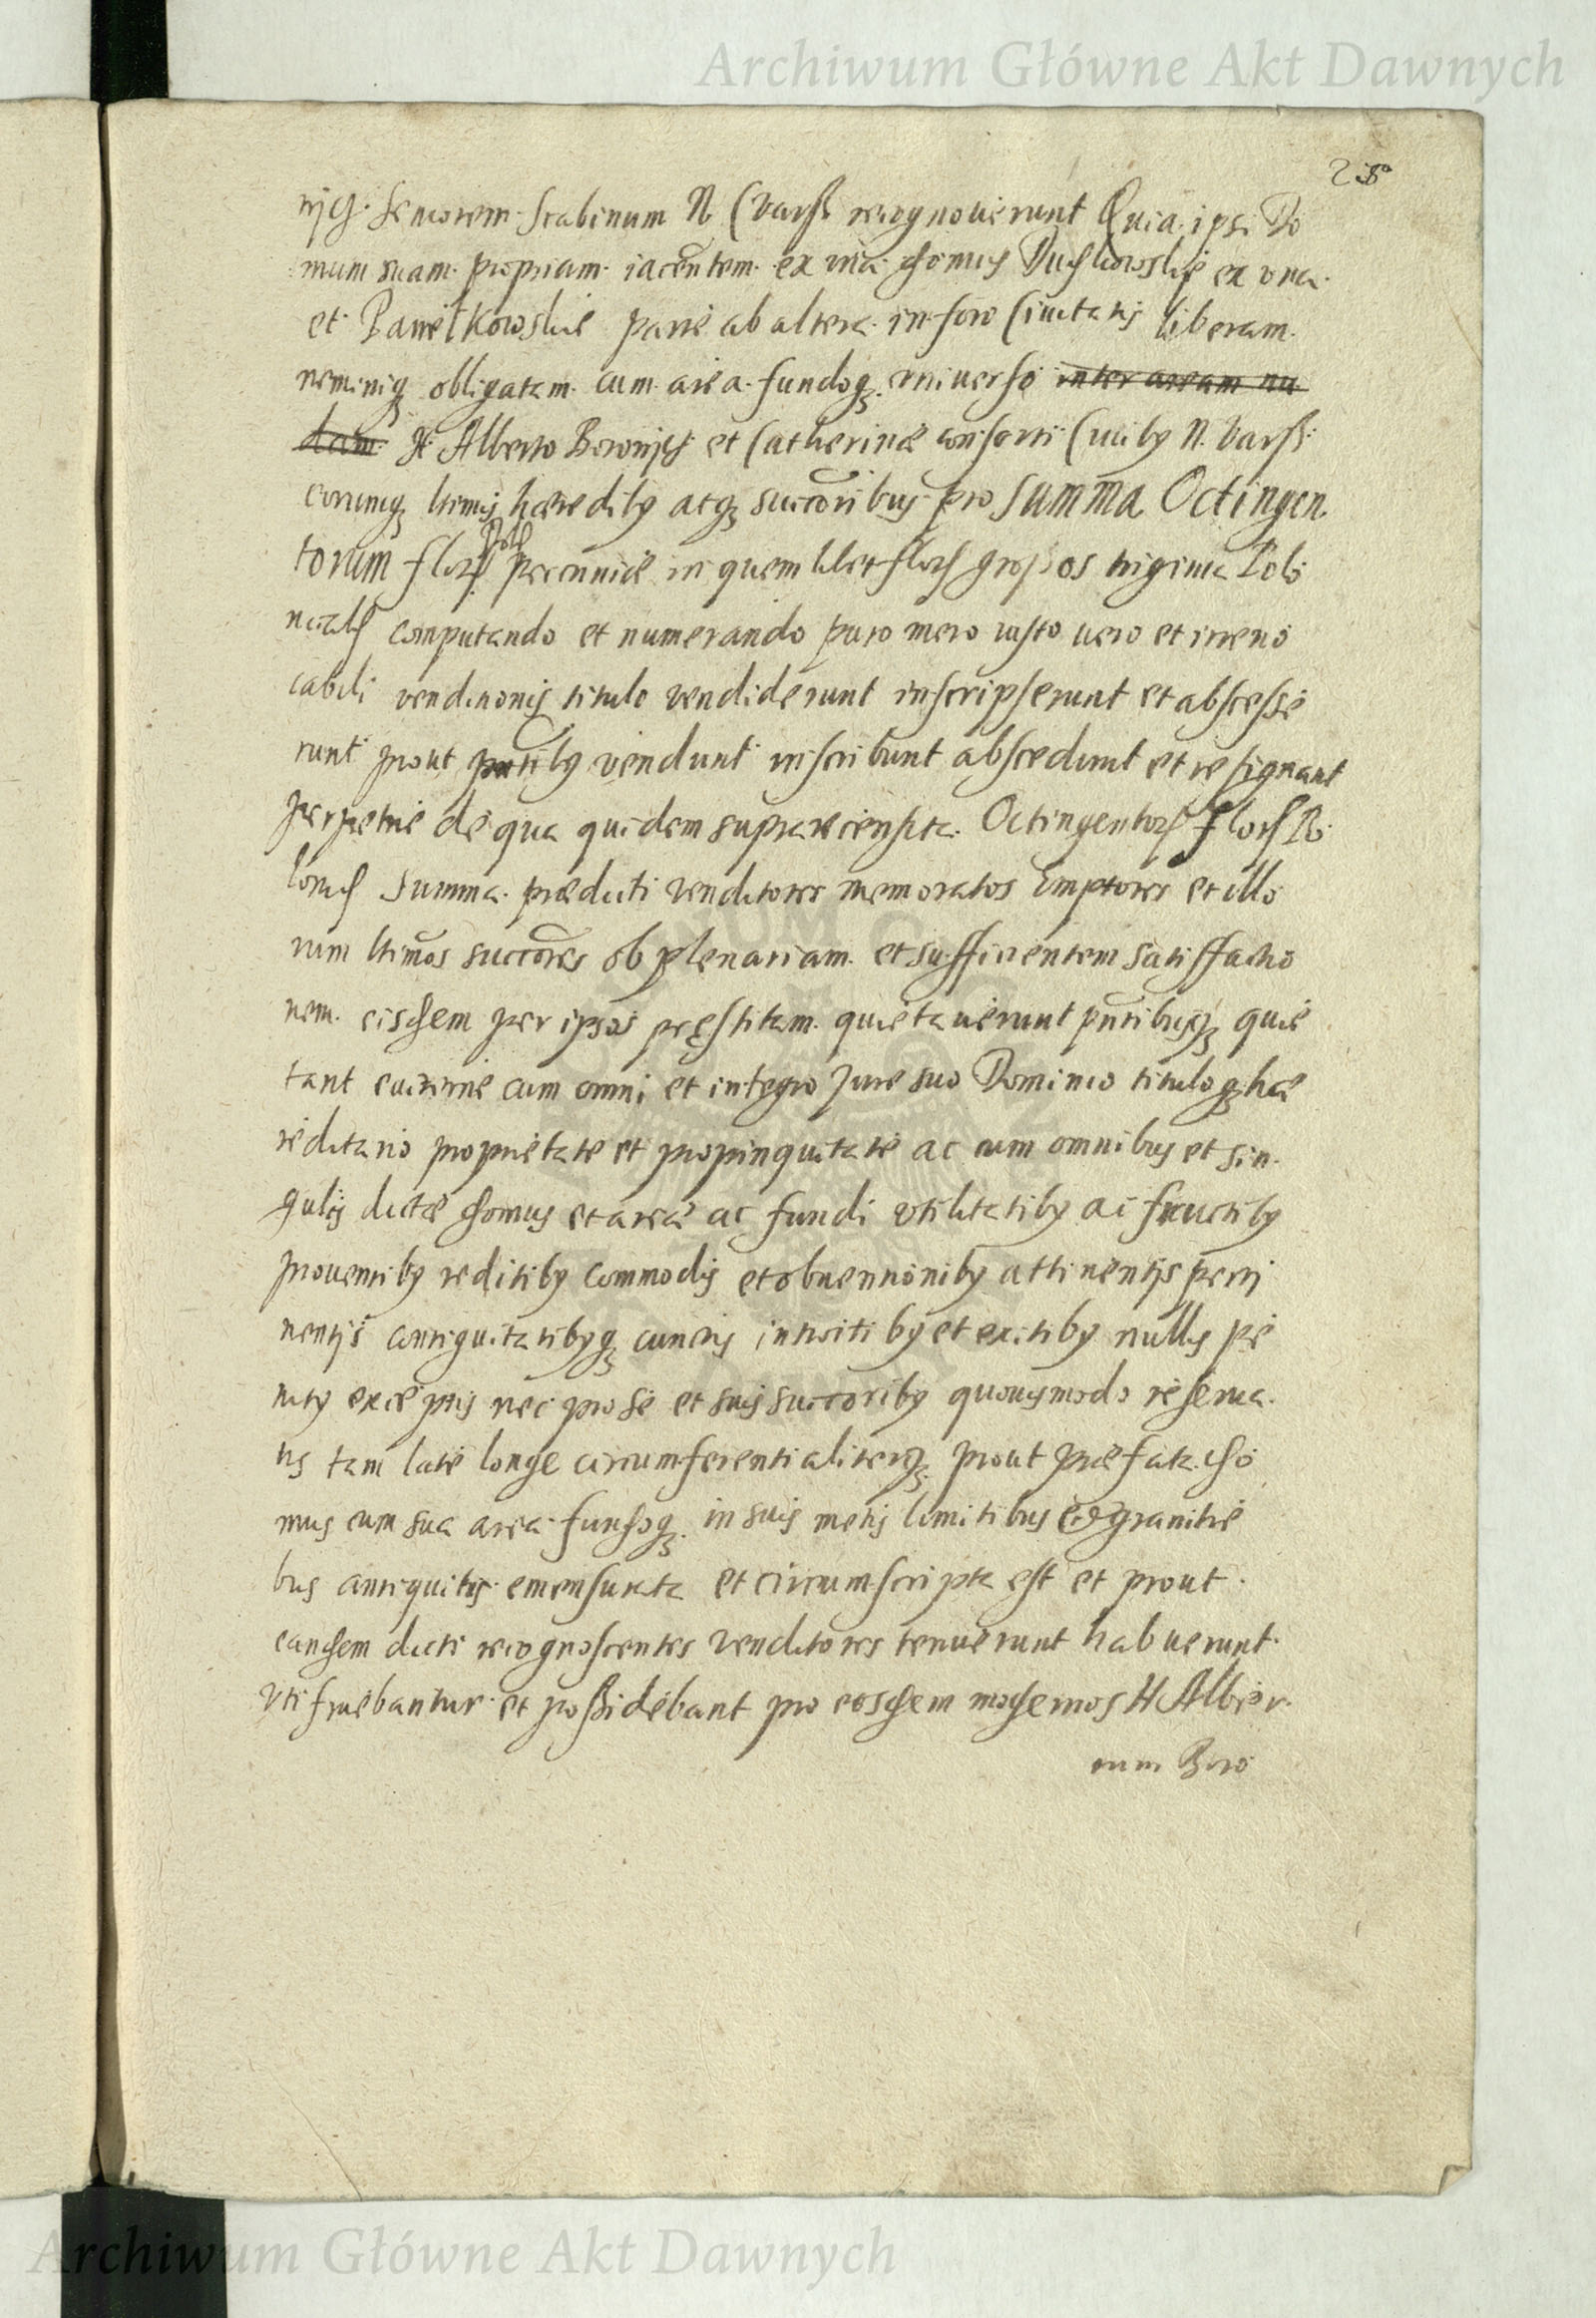 Archiwum Główne Akt Dawnych
25
seniorem Scabinum N. Vars: recognoverunt Quia ipsi Do
mum suam propriam iacentem ex una domus ex una
et Pawełkowskie parte ab altera in foro Civitatis liberam
neminiq obligatam cum area fundoq universo inter aream nu
dam H. Alberto et Catherinæ consorti Civiby N. Vars:
eorumq ltimis hærediby atq succoribus pro Summa Octingen
torum flor Pol pecuniæ in quemlibet flor grossos triginta Polo
nicales computando et numerando puro mero iusto vero et irrevo
cabili venditionis titulo vendiderunt inscripserunt et abscesse
runt prout pntiby vendunt inscribunt abscedunt et resignant
perpetue de qua quidem suprarecensita Octingentor flor Po
lonic Summa prædicti venditores memoratos Emptores et illo
rum ltimos succores ob plenariam et sufficientem satisfactio
nem eisdem per ipsos pręstitam quietaverunt pntibusq quie
tant cum omni et integro Jure suo Dominio tituloq hæ
reditario proprietate et propinquitate ac cum omnibus et sin
gulis dictæ domus et areæ ac fundi utilitatiby ac fructiby
proventiby reditiby commodis et obventioniby attinentijs perti
nentijs contiguitatibyq cunctis introitiby et exitiby nullis pe
nity exceptis nec pro se et suis succoriby quovismodo reserva
tis tam late longe circumferentialiterq prout præfata do
mus cum sua area fundoq in suis metis limitibus & granitie
bus antiquitus emensurata et circumscripta est et prout
eandem dicti recognoscentes venditores tenuerunt habuerunt
uti fruebantur et possidebant pro eosdem modernos H Alber
tum Boro
Archiwum Główne Akt Dawnych